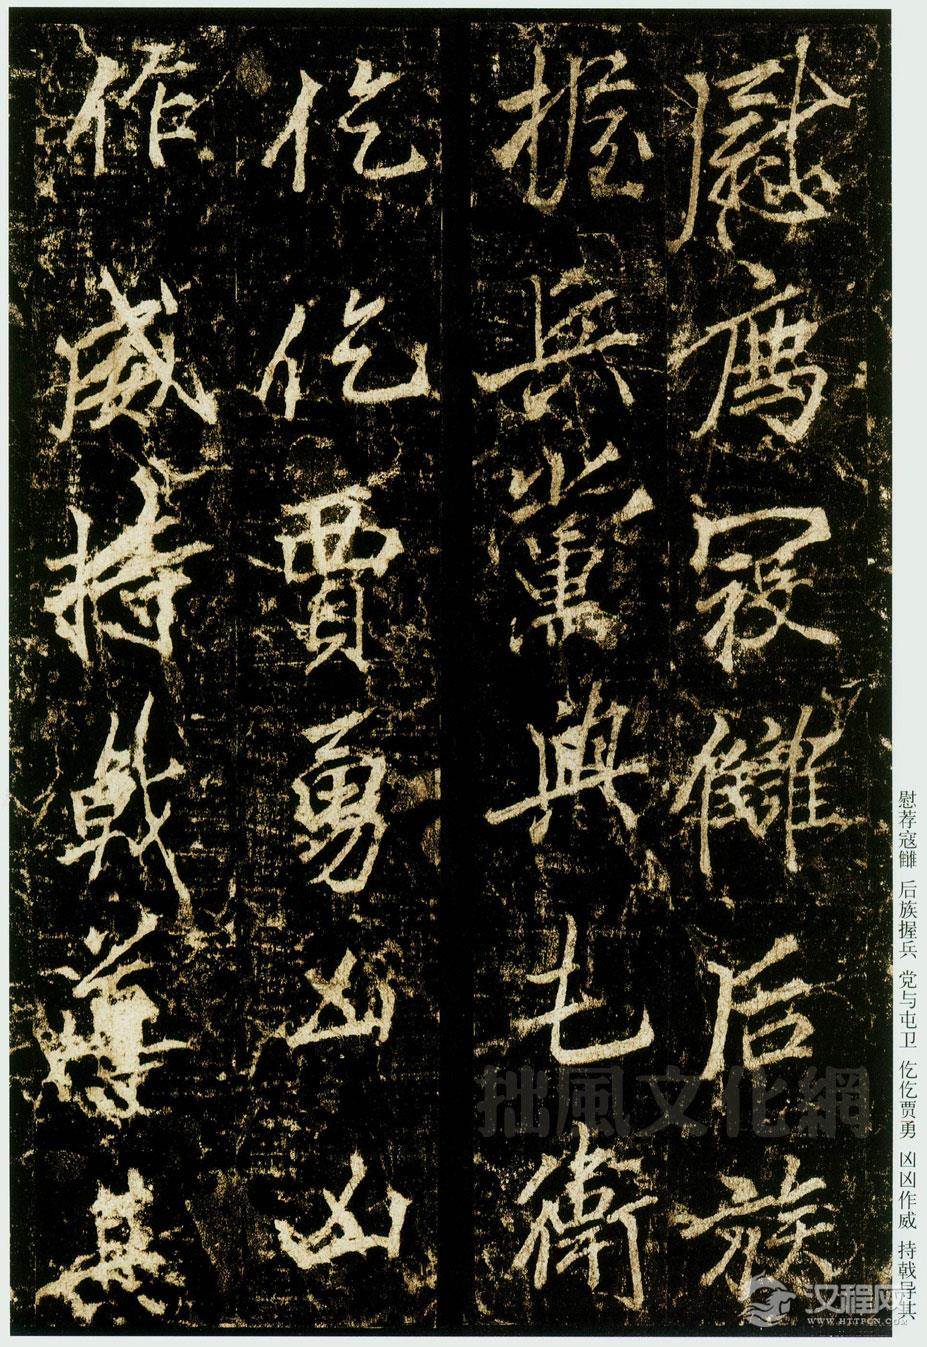 慰薦寇讎后族
握兵黨與屯衛
仡仡賈勇凶凶
作威持戟導其
慰荐寇雠 后族握兵 党与屯卫 仡仡贾勇 凶凶作威 持戟导其
拙風文化網
汉程网
WWW.HTTPCN.COM